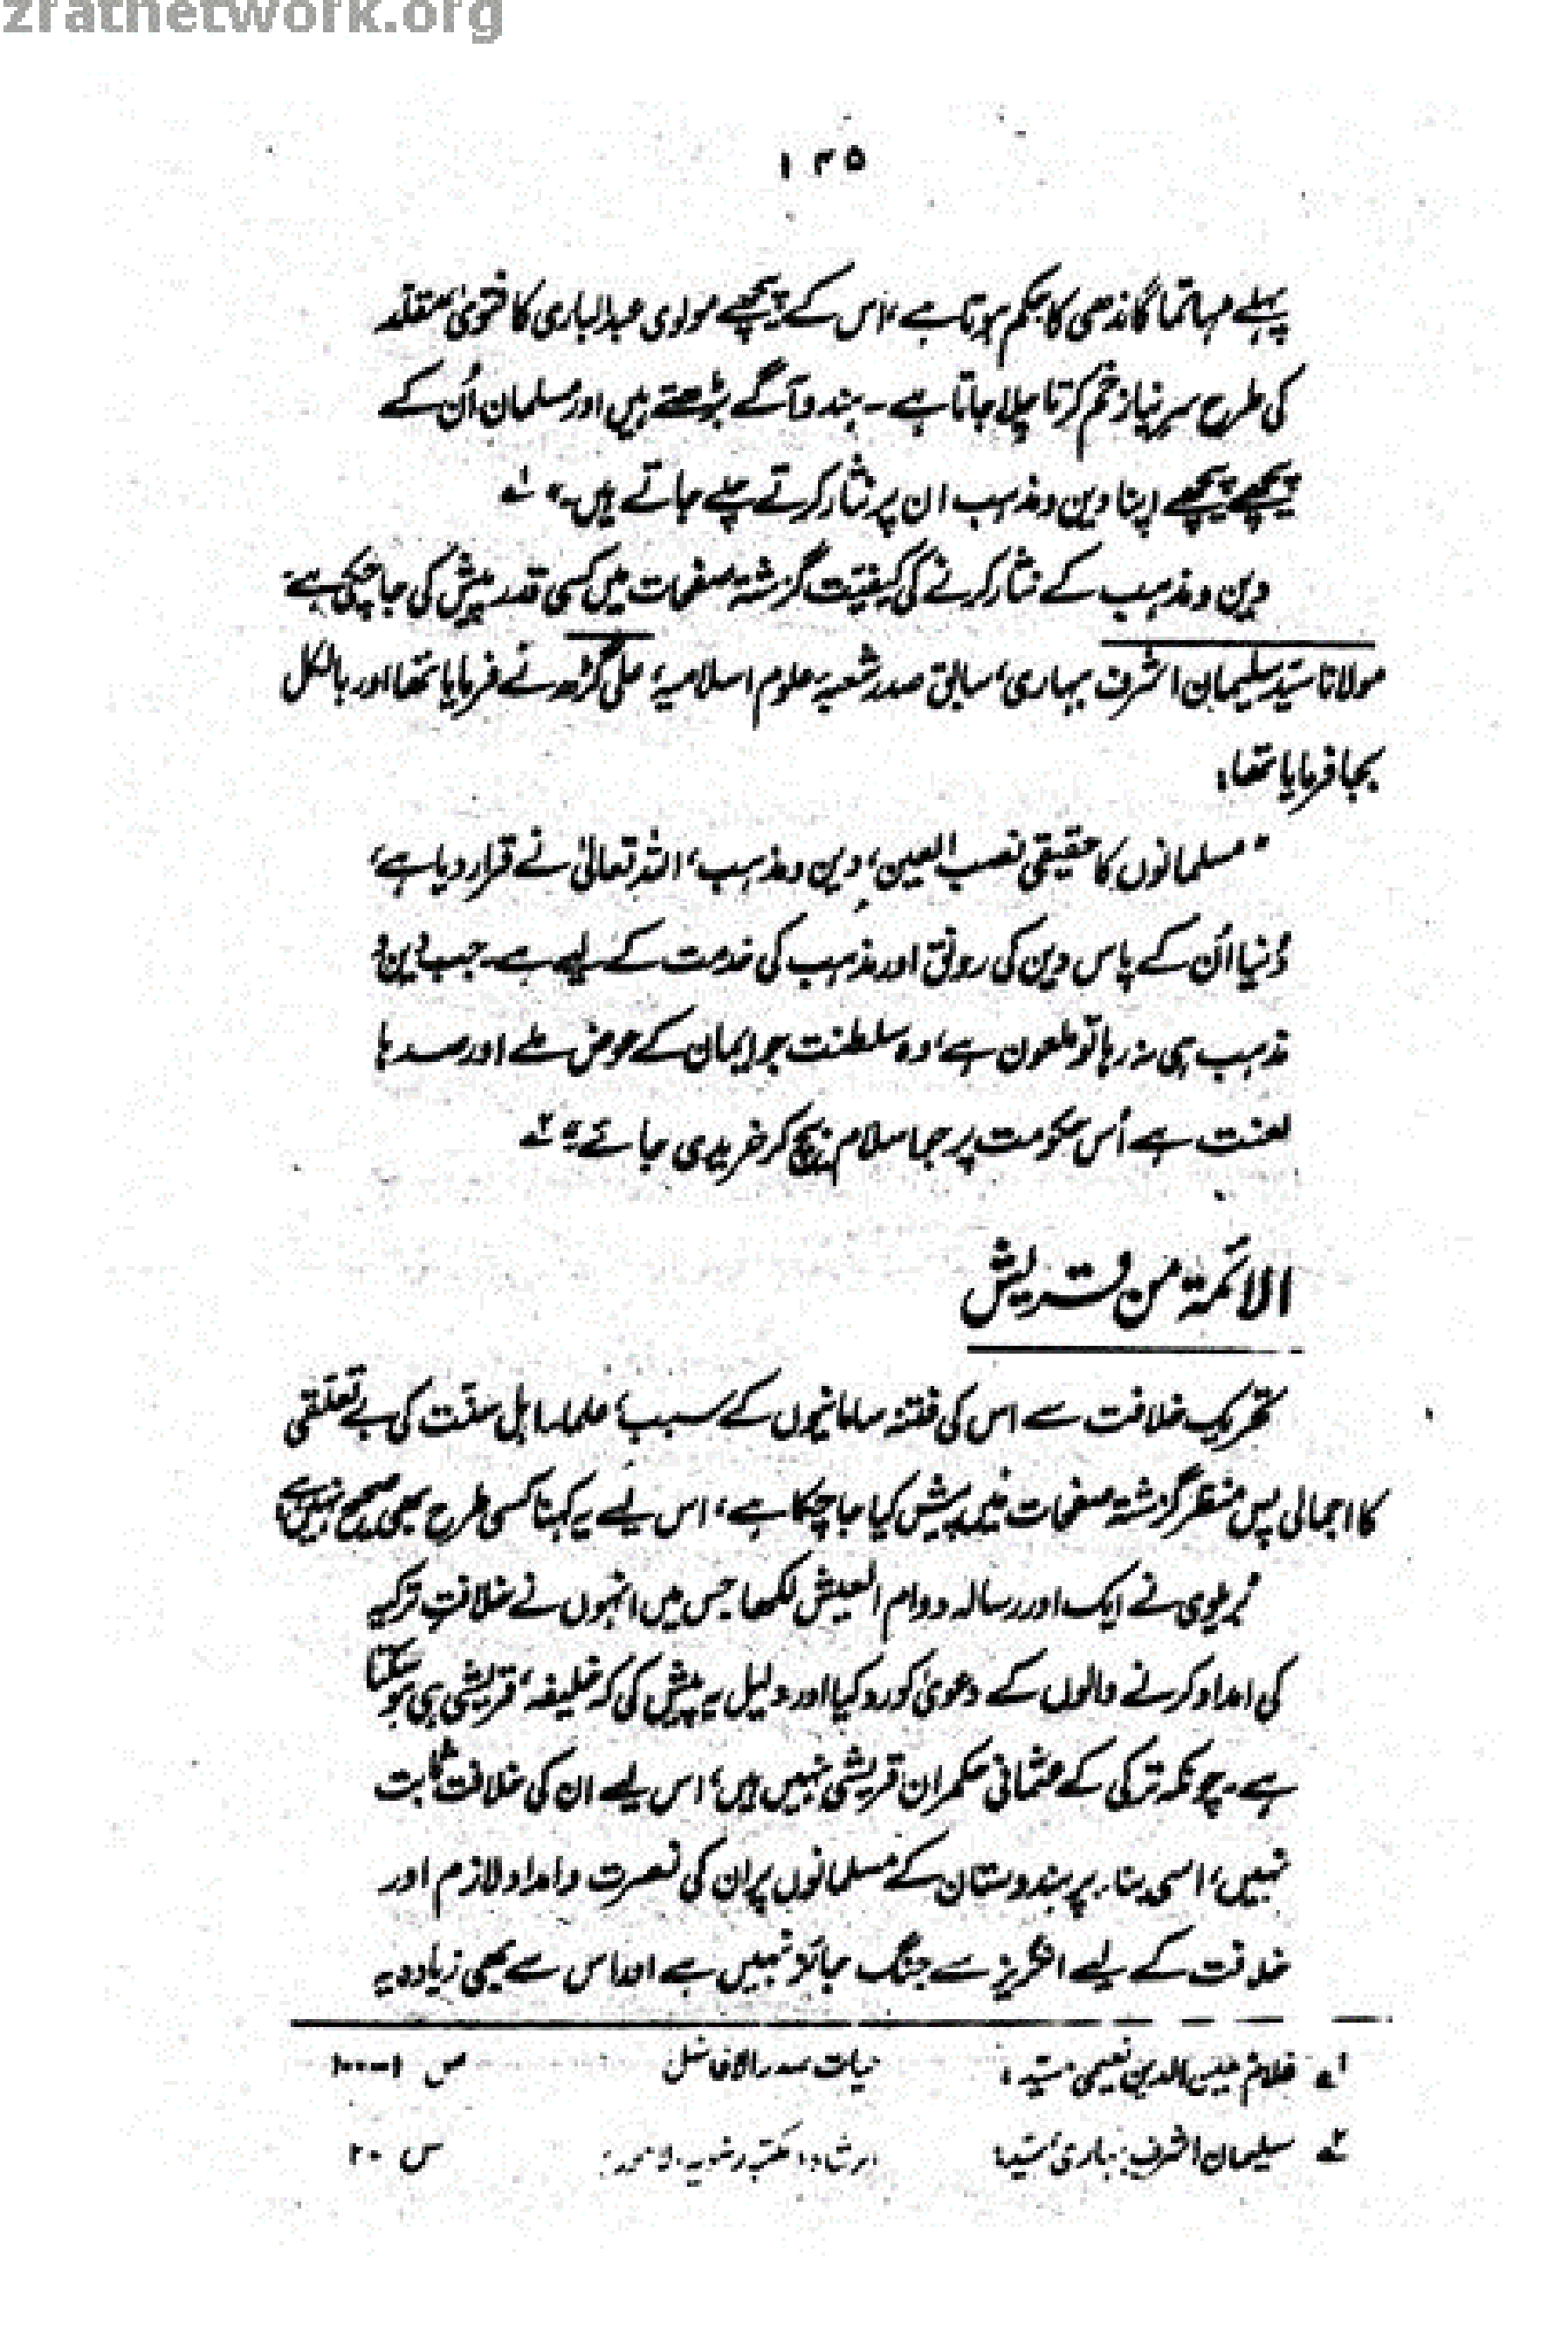 zratnetwork.org
۱۳۵
پہلے مہاتما گاندھی کا حکم ہوتا ہے، اس کے پیچھے مولوی عبدالباری کا فتویٰ مقلد
کی طرح سرِ نیاز خم کرتا چلا جاتا ہے۔ ہندو آگے بڑھتے ہیں اور مسلمان اُن کے
پیچھے پیچھے اپنا دین و مذہب ان پر نثار کرتے چلے جاتے ہیں۔" ۱؎
دین و مذہب کے نثار کرنے کی کیفیت گزشتہ صفحات میں کسی قدر پیش کی جا چکی ہے۔
مولانا سیّد سلیمان اشرف بہاری، سابق صدر شعبہ علوم اسلامیہ، علی گڑھ نے فرمایا تھا اور بالکل
بجا فرمایا تھا:
"مسلمانوں کا حقیقی نصب العین، دین و مذہب، اللہ تعالیٰ نے قرار دیا ہے،
دُنیا اُن کے پاس دین کی رونق اور مذہب کی خدمت کے لیے ہے۔ جب دین و
مذہب ہی نہ رہا تو ملعون ہے، وہ سلطنت جو ایمان کے عوض ملے اور صدہا
لعنت ہے اُس حکومت پر جو اسلام بیچ کر خریدی جائے" ۲؎
الائمۃ من قریش
تحریک خلافت سے اس کی فتنہ سامانیوں کے سبب، علماء اہل سنّت کی بے تعلّقی
کا اجمالی پس منظر گزشتہ صفحات میں پیش کیا جا چکا ہے، اس لیے یہ کہنا کسی طرح بھی صحیح نہیں ہے
بریلوی نے ایک اور رسالہ دوام العیش لکھا جس میں انہوں نے خلافتِ ترکیہ
کی امداد کرنے والوں کے دعویٰ کو رد کیا اور دلیل یہ پیش کی کہ خلیفہ، قریشی ہی ہو سکتا
ہے۔ چونکہ ترکی کے عثمانی حکمران قریشی نہیں ہیں، اس لیے ان کی خلافت ثابت
نہیں، اسی بناء پر ہندوستان کے مسلمانوں پر ان کی نصرت و امداد لازم اور
خلافت کے لیے انگریز سے جنگ جائز نہیں ہے اور اس سے بھی زیادہ یہ
۱؎ غلام معین الدین نعیمی سیّد، حیات صدر الافاضل ص ۱۰۰-۱
۲؎ سلیمان اشرف بہاری، سیّد، الرشاد، مکتبہ رضویہ، لاہور، ص ۲۰